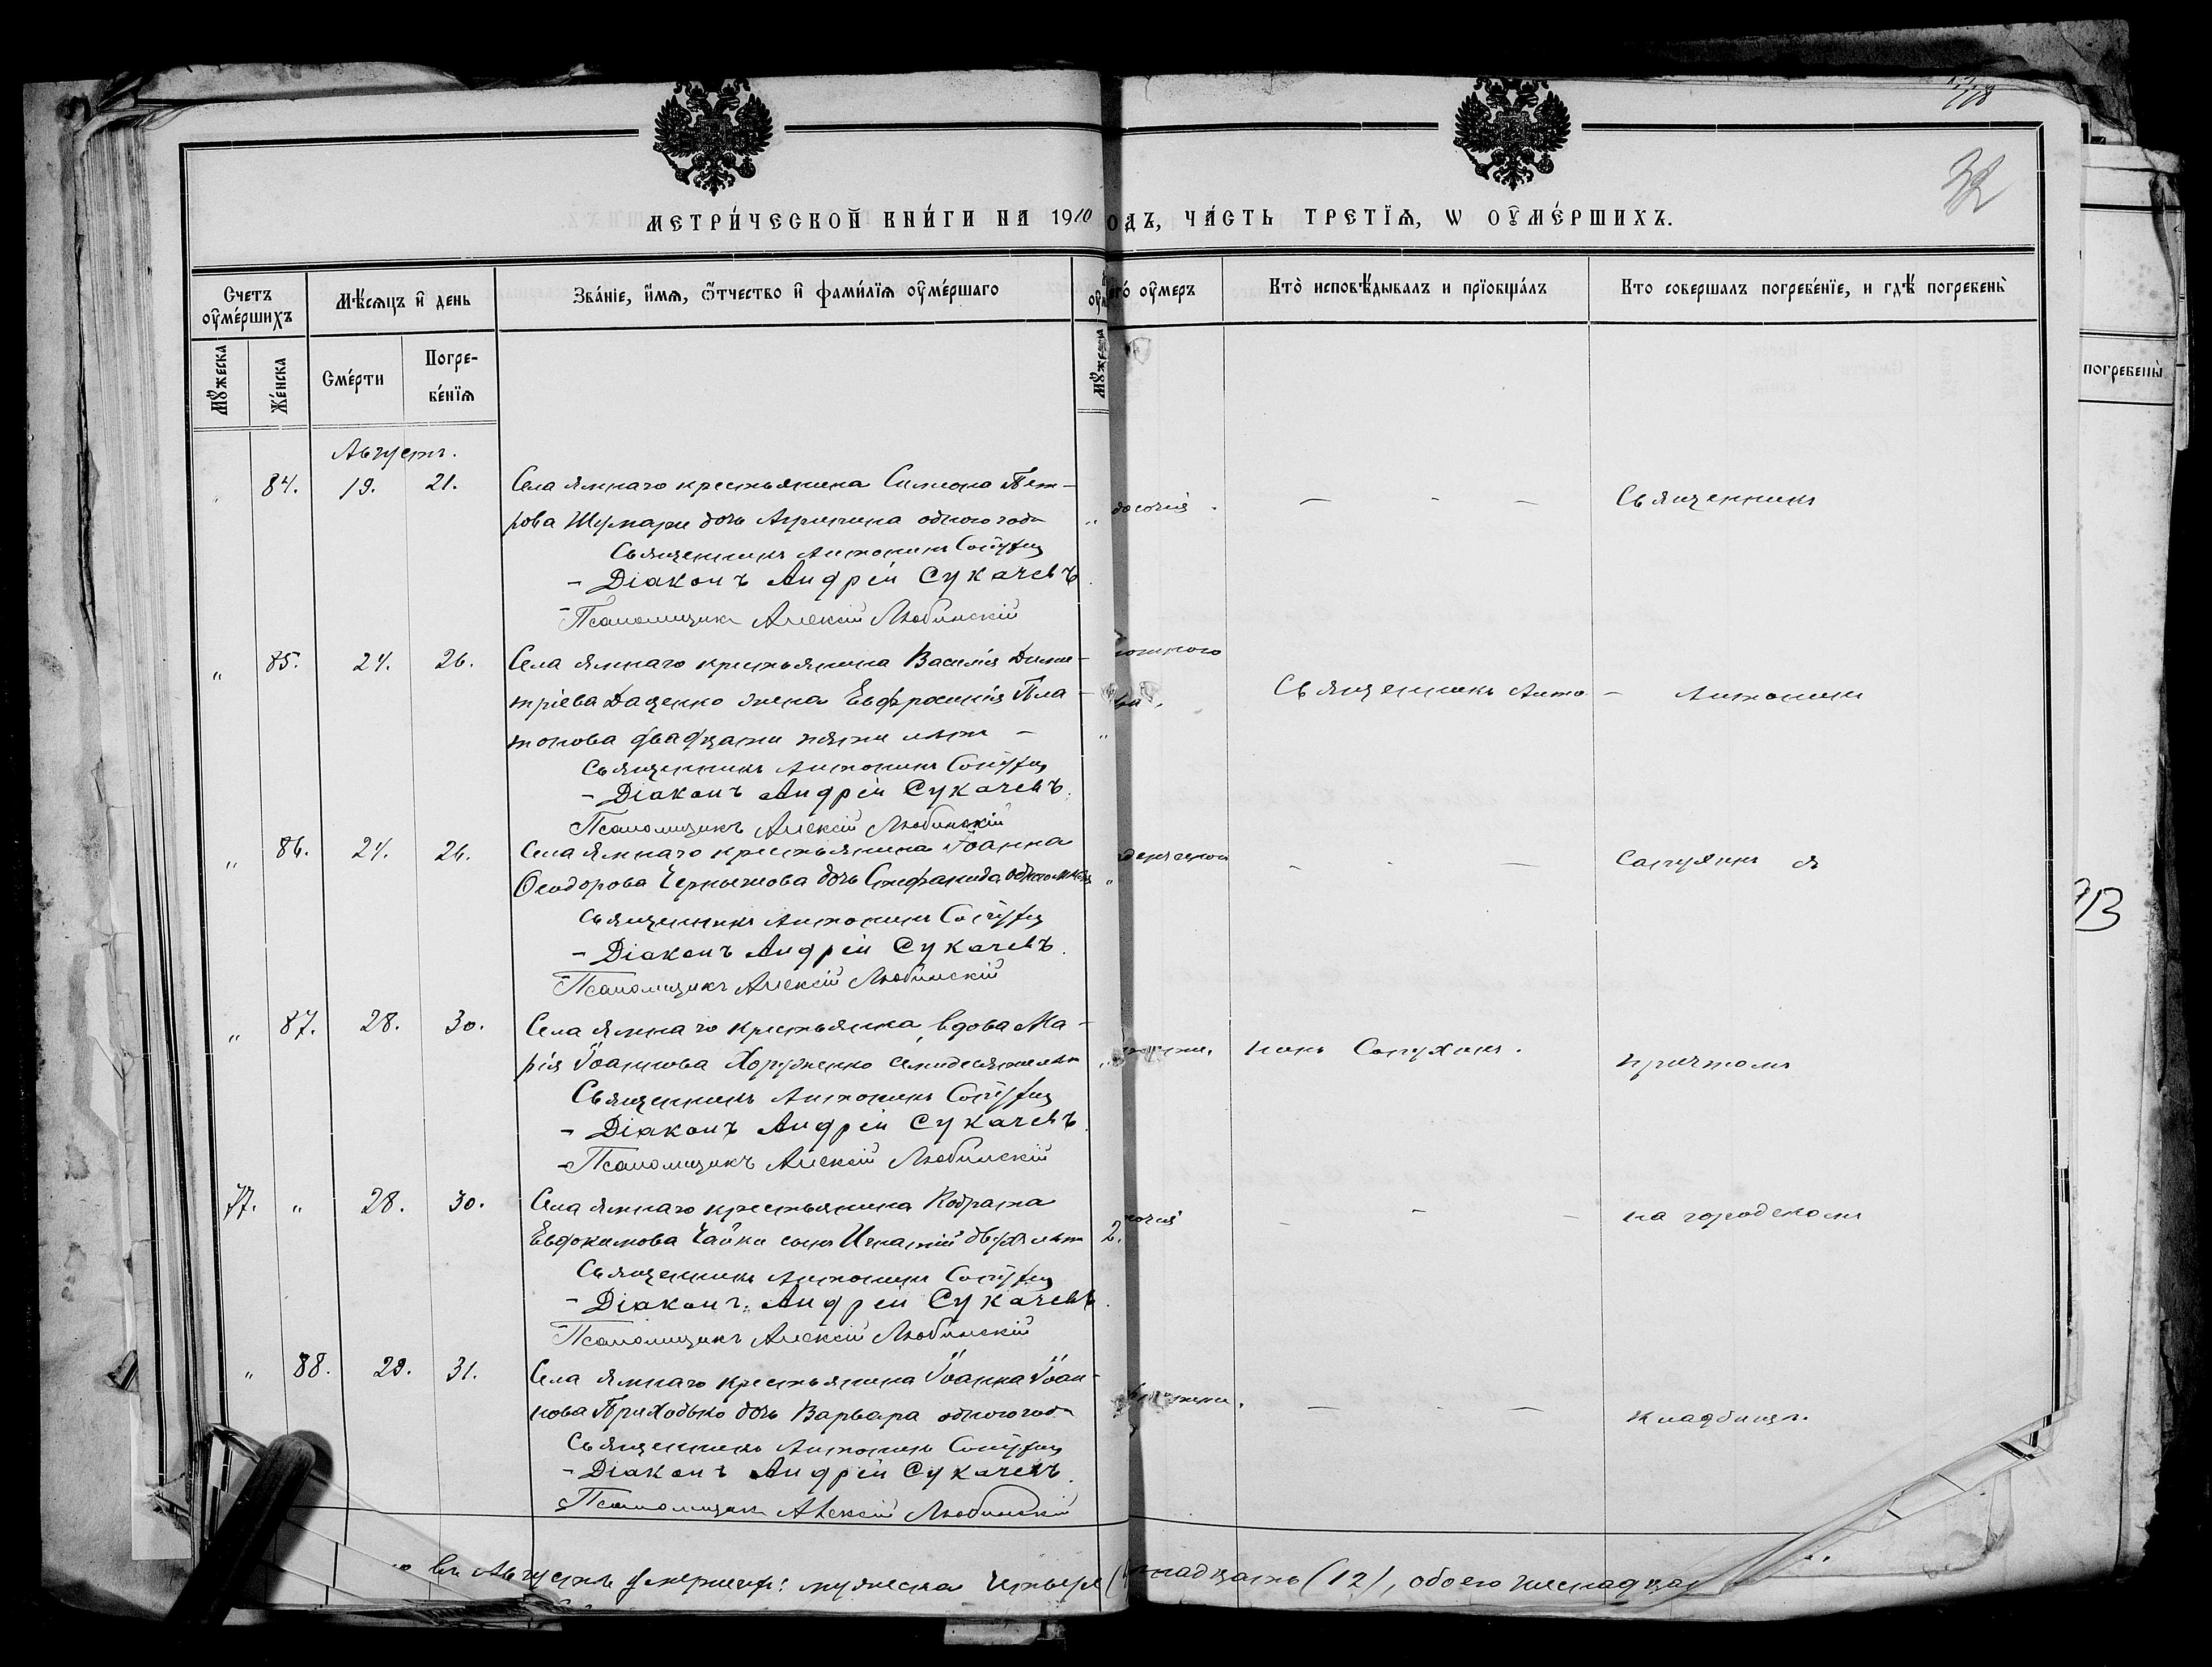 118
32
МЕТРИ́ЧЕСКОЙ КНИ́ГИ НА 1910
ОДЪ, ЧА́СТЬ ТРЕТІѦ, Ѡ ОУМЕ́РШИХЪ.
Счетъ оумершихъ
Мѣсяцъ и день
Зва́ніе, имя, отчество и фами́лія оуме́ршаго
его оумеръ
Кто исповѣдывалъ и пріобща́лъ
Кто совершалъ погребе́ніе, и гдѣ погребены
Мужеска
Же́нска
Сме́рти
Погребе́нія
Мужеска
погребены
Августъ.
84. 19. 21. Села Ямнаго крестьянина Симеона Пет-
рова Шумари дочь Агрипина одного года
Священникъ Антонинъ
- Діаконъ Андрей Сукачевъ.
- Псаломщикъ Алексій Любинскій
— - — Священникъ
" 85. 24. 26. Села Ямнаго крестьянина Василія Дими-
тріева Даценко жена Евфросинія Пла-
тонова двадцати пяти лѣтъ —
Священникъ Антонинъ
- Діаконъ Андрей Сукачевъ.
Псаломщикъ Алексій Любинскій
Священникъ Анто- Антонинъ
" 86. 24. 26. Села Ямнаго крестьянина Іоанна
Ѳеодорова Чернышова дочь Стефанида
Священникъ Антонинъ
- Діаконъ Андрей Сукачевъ.
- Псаломщикъ Алексій Любинскій
- - — съ
" 87. 28. 30. Села Ямнаго крестьянка, вдова Ма-
рія Іоаннова Хоруженко семидесяти лѣтъ
Священникъ Антонинъ
- Діаконъ Андрей Сукачевъ.
- Псаломщикъ Алексій Любинскій
нинъ
причтомъ
77. " 28. 30. Села Ямнаго крестьянина Кодрата
Евдокимова Чайки сынъ Игнатій двухъ лѣтъ 2.
Священникъ Антонинъ
- Діаконъ Андрей Сукачевъ.
Псаломщикъ Алексій Любинскій
- - — на городскомъ
" 88. 29. 31. Села Ямнаго крестьянина Іоанна Іоан-
нова Приходько дочь Варвара одного года
Священникъ Антонинъ
- Діаконъ Андрей Сукачевъ.
Псаломщикъ Алексій Любинскій
— - — кладбищѣ.
въ Августѣ умершихъ: мужеска четыре
надцать (12), обоего шестнадца